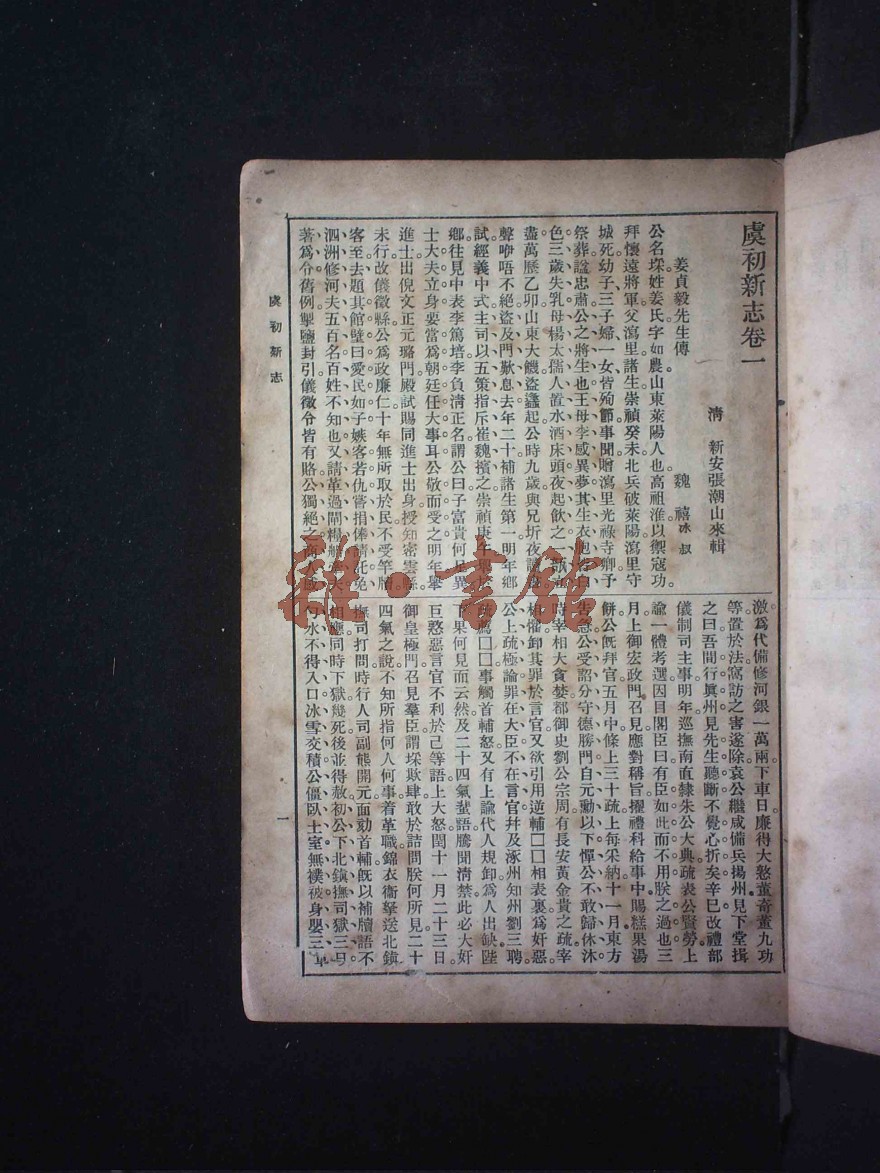 虞初新志卷一
清 新安張潮山來輯
姜貞毅先生傳 魏 禧冰叔
公名埰姓姜氏字如農山東萊陽人也高祖淮以禦寇功
拜懷遠將軍父瀉里諸生崇禎癸未北兵破萊陽瀉里守
城死幼子三子婦一女皆殉節事聞贈瀉里光祿寺卿予
祭葬諡忠肅公之將生也王母李感異夢其生衣胞皆白
色三歲失乳母楊太孺人置水酒床頭夜起飲之一甌
盡萬歷乙卯山東大饑盜蠭起公時九歲與兄圻夜讀書
聲咿唔不絕盜及門歎息去年二十補諸生第一明年鄉
試經義中式主司以五策指斥崔魏擯之崇禎庚午舉於
鄉往見中表李篤培李負清正名謂公曰子富貴何足異
士大夫立身要當爲朝廷任大事耳公敬而受之明年舉
進士出倪文正元璐門殿試賜同進士出身授知密雲縣
未行改儀徵縣公爲政廉仁十年無所取於民不受竿牘
客至去題其館壁曰愛民如子嫉客若仇嘗捐俸請託免
泗洲修河夫五百名百姓不知也又請革過閘糧
著爲令舊例掣鹽封引儀徵令皆有賂公獨絕之商人
激爲代備修河銀一萬兩下車日廉得大憝董奇董九功
等置於法寃訪之害遂除袁公繼咸備兵揚州見下堂揖
之曰吾間行眞州見先生聽斷不覺心折矣辛巳改禮部
儀制司主事明年巡撫南直隸朱公大典疏表公賢勞上
諭一體考選因目閣臣曰有臣如此而不用朕之過也三
月上御宏政門召見應對稱旨擢禮科給事中賜糕果湯
餅公旣拜官五月中條上三十疏上每采納十一月東方
告急公受詔分守德勝門自元勳以下憚公不敢歸休沐
時宰相大貪婪都御史劉公宗周有長安黃金貴之疏宰
相懼卸其罪於言官又欲引用逆輔囗囗相表裏爲奸惡
公上疏極論罪在大臣不在言官幷及涿州知州劉三聘
疏薦囗囗事觸首輔怒又有上諭代人規卸爲人出缺陛
下果何見而云然及二十四氣蜚語騰聞清禁此必大奸
巨憝惡言官不利於己等語上大怒閏十一月二十三日
御皇極門召見羣臣謂埰欺肆敢於詰問朕何所見二十
四氣之說不知所指何人何事着革職錦衣衞拏送北鎮
撫司打問時行人司副熊開元面劾首輔旣以補牘語不
相應同時下獄幾死後並得赦初公下北鎭撫司獄三日
勺水不得入口冰雪交積公僵臥土室無襆被身嬰三木
虞初新志
一
雜·書館